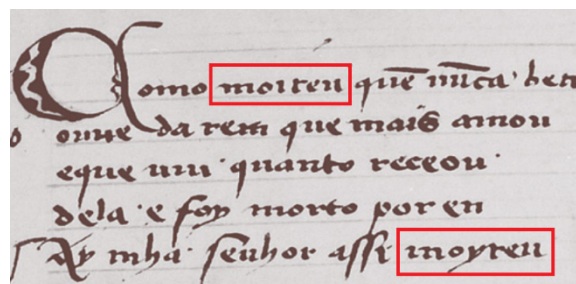 Como moireu quē nūca ben
ouue da rem que mais amou
eque uiu quanto receou
dela e foy morto por en
Ay mha senhor assi moyreu